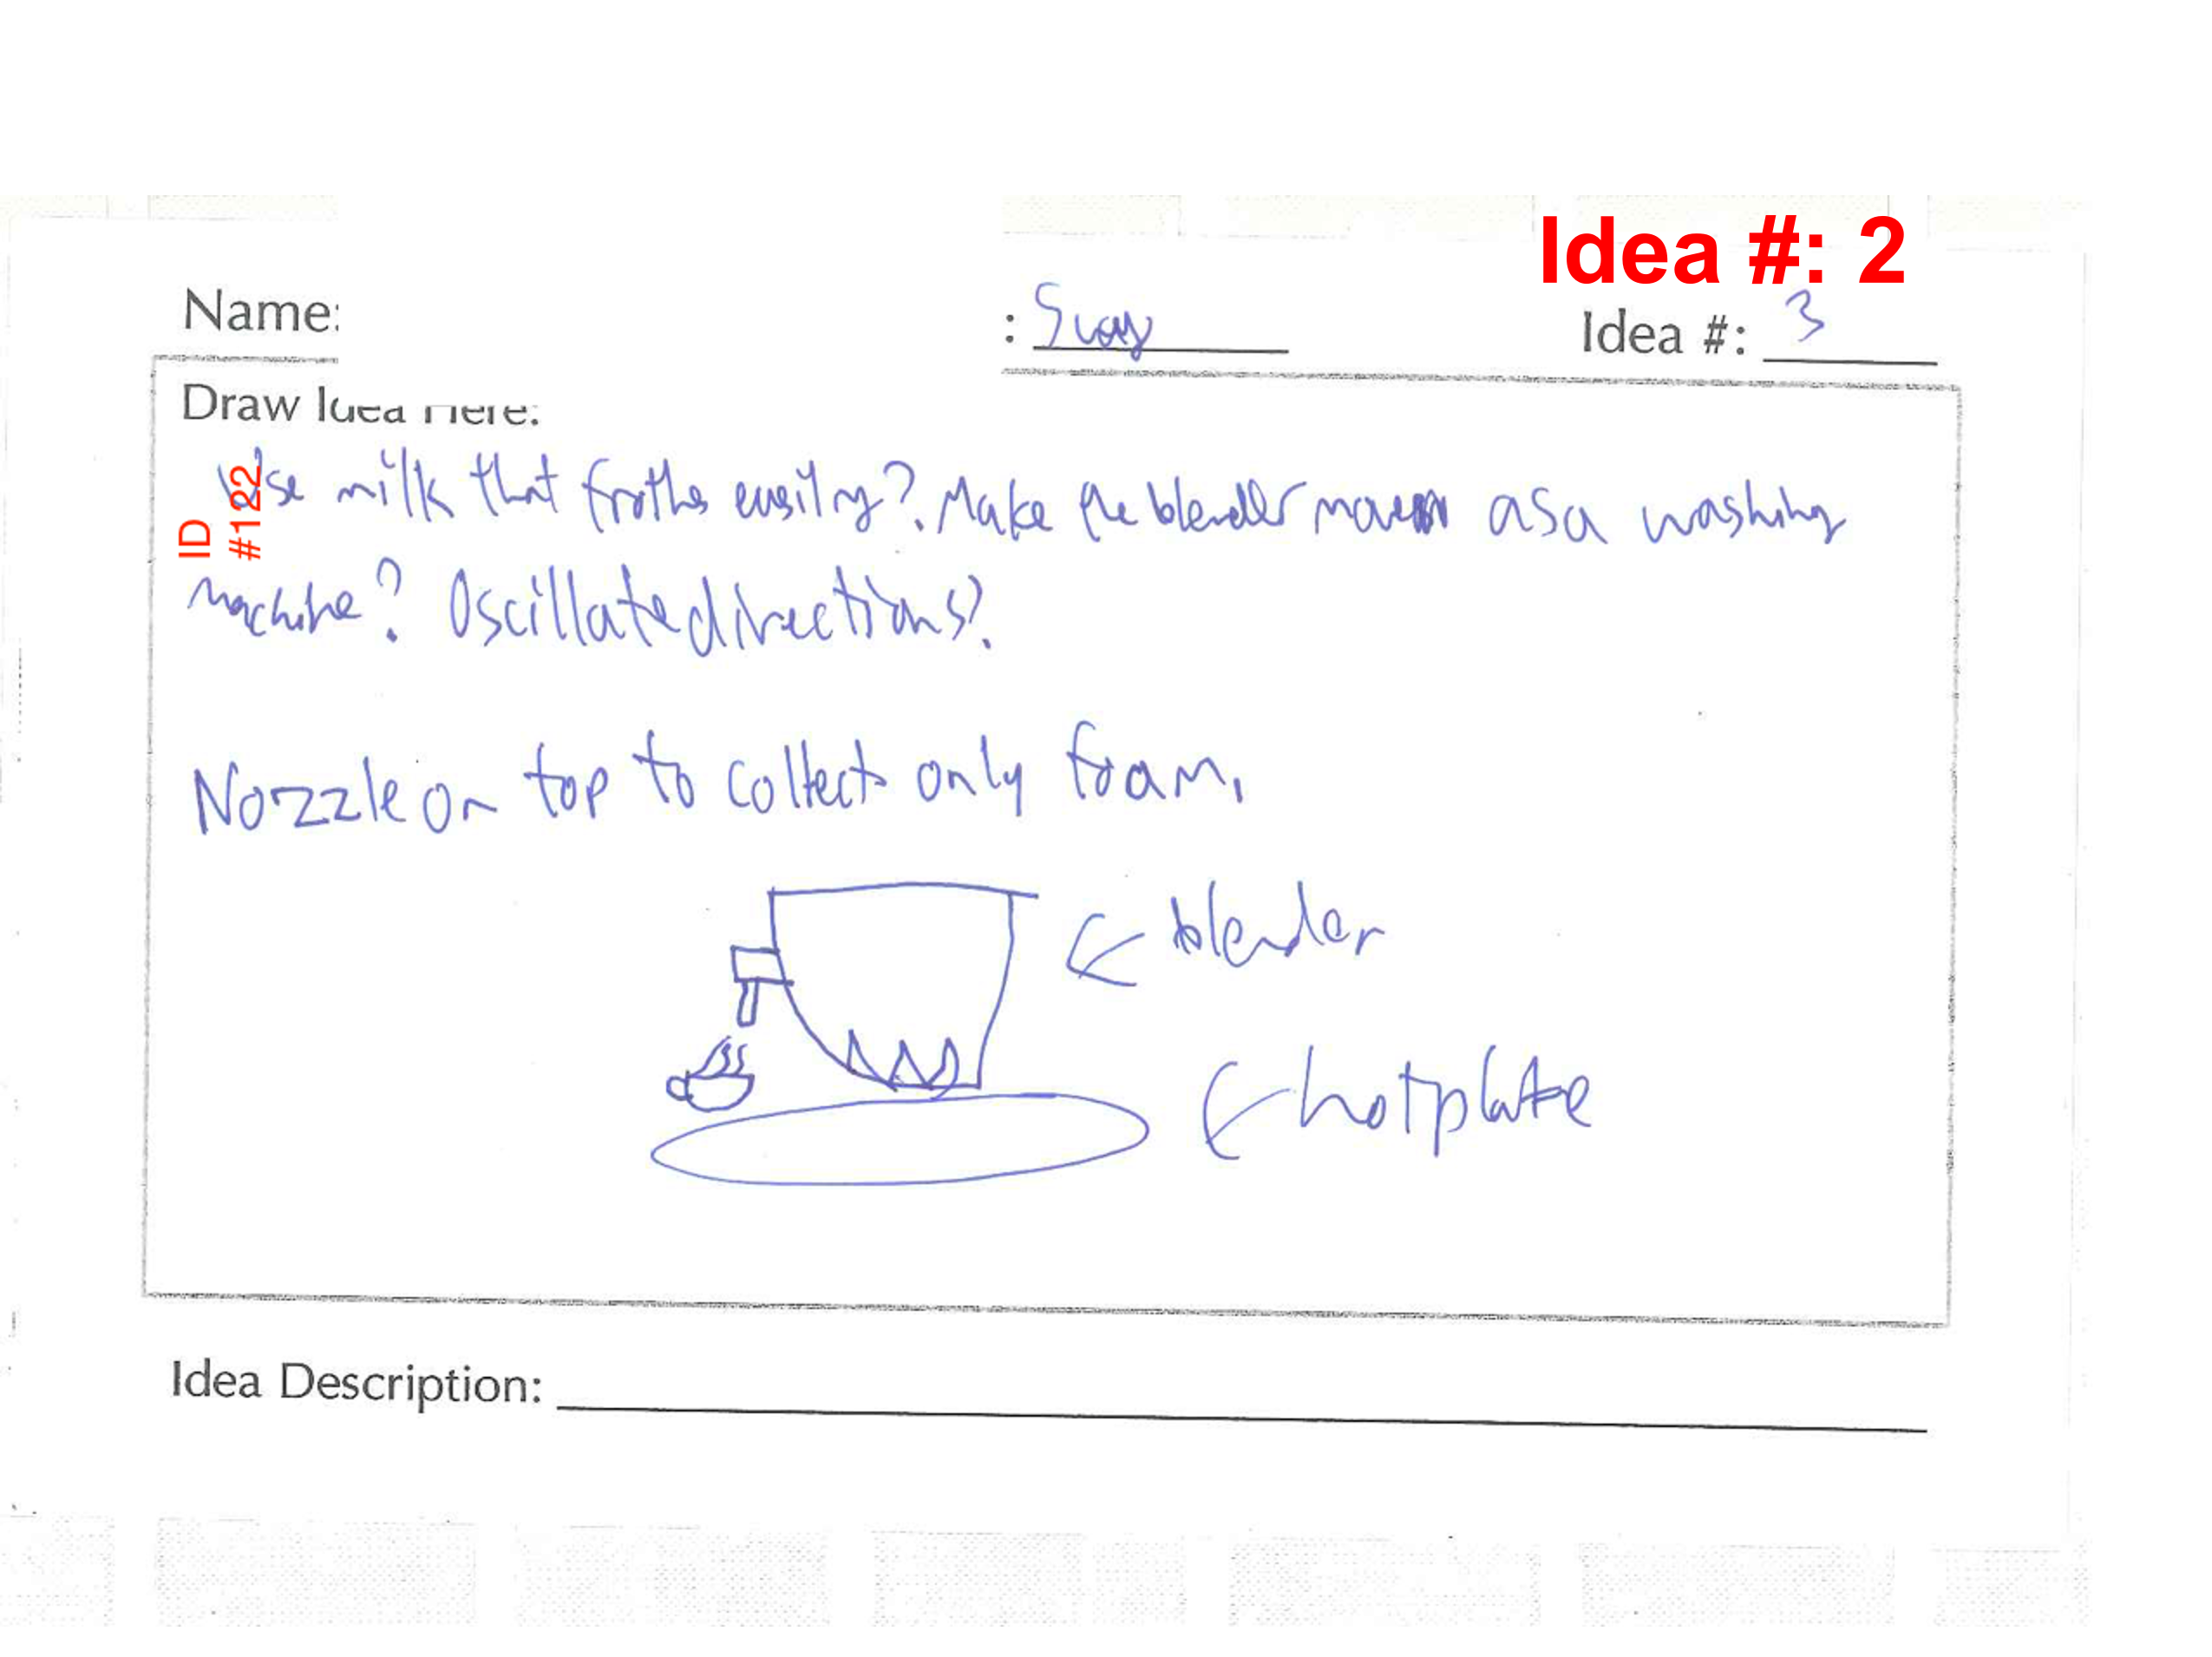 Idea #: 2
Name:
:
Idea #: 3
Draw Idea Here:
ID
#122
Use milk that froths easily?. Make the blender move as a washing
machine? Oscillate directions?
Nozzle on top to collect only foam.
blender
hotplate
Idea Description: